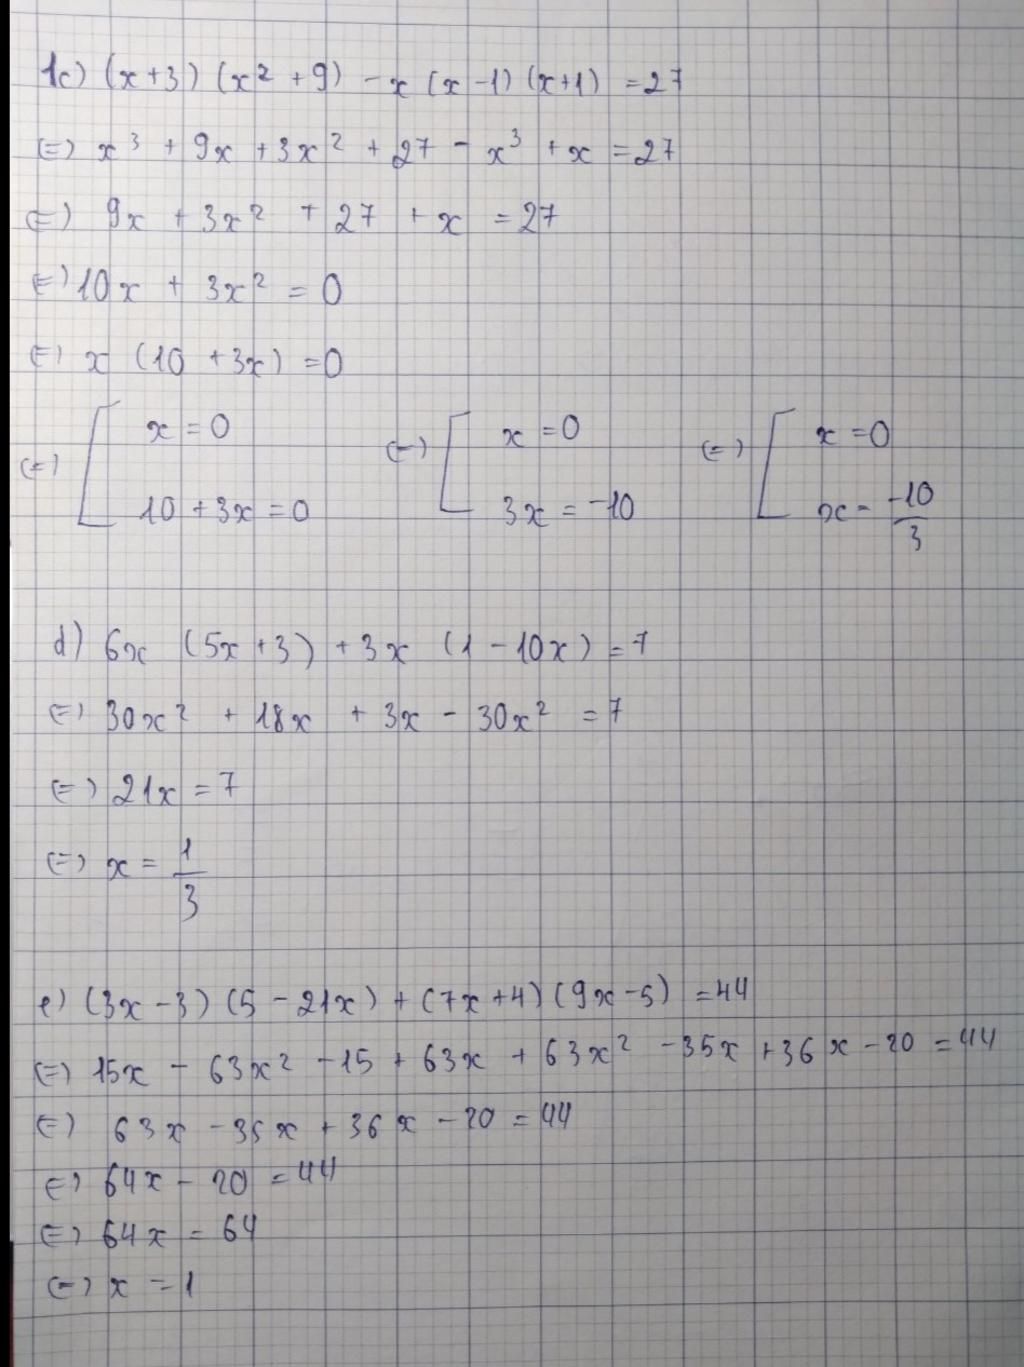 1c) (x+3) (x² + 9) - x (x-1) (x+1) = 27
(=) x³ + 9x + 3x² + 27 - x³ + x = 27
(=) 9x + 3x² + 27 + x = 27
(=) 10x + 3x² = 0
(=) x (10 + 3x) = 0
(=) [ x = 0 (=) [ x = 0 (=) [ x = 0
10 + 3x = 0 3x = -10 x = -10/3
d) 6x (5x+3) + 3x (1 - 10x) = 7
(=) 30x² + 18x + 3x - 30x² = 7
(=) 21x = 7
(=) x = 1/3
e) (3x - 3) (5 - 21x) + (7x + 4) (9x - 5) = 44
(=) 15x - 63x² - 15 + 63x + 63x² - 35x + 36x - 20 = 44
(=) 63x - 35x + 36x - 20 = 44
(=) 64x - 20 = 44
(=) 64x = 64
(=) x = 1